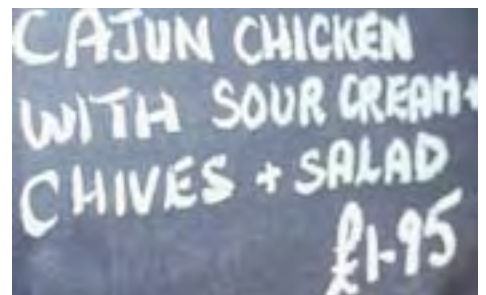 CAJUN CHICKEN
WITH SOUR CREAM +
CHIVES + SALAD
£1-95